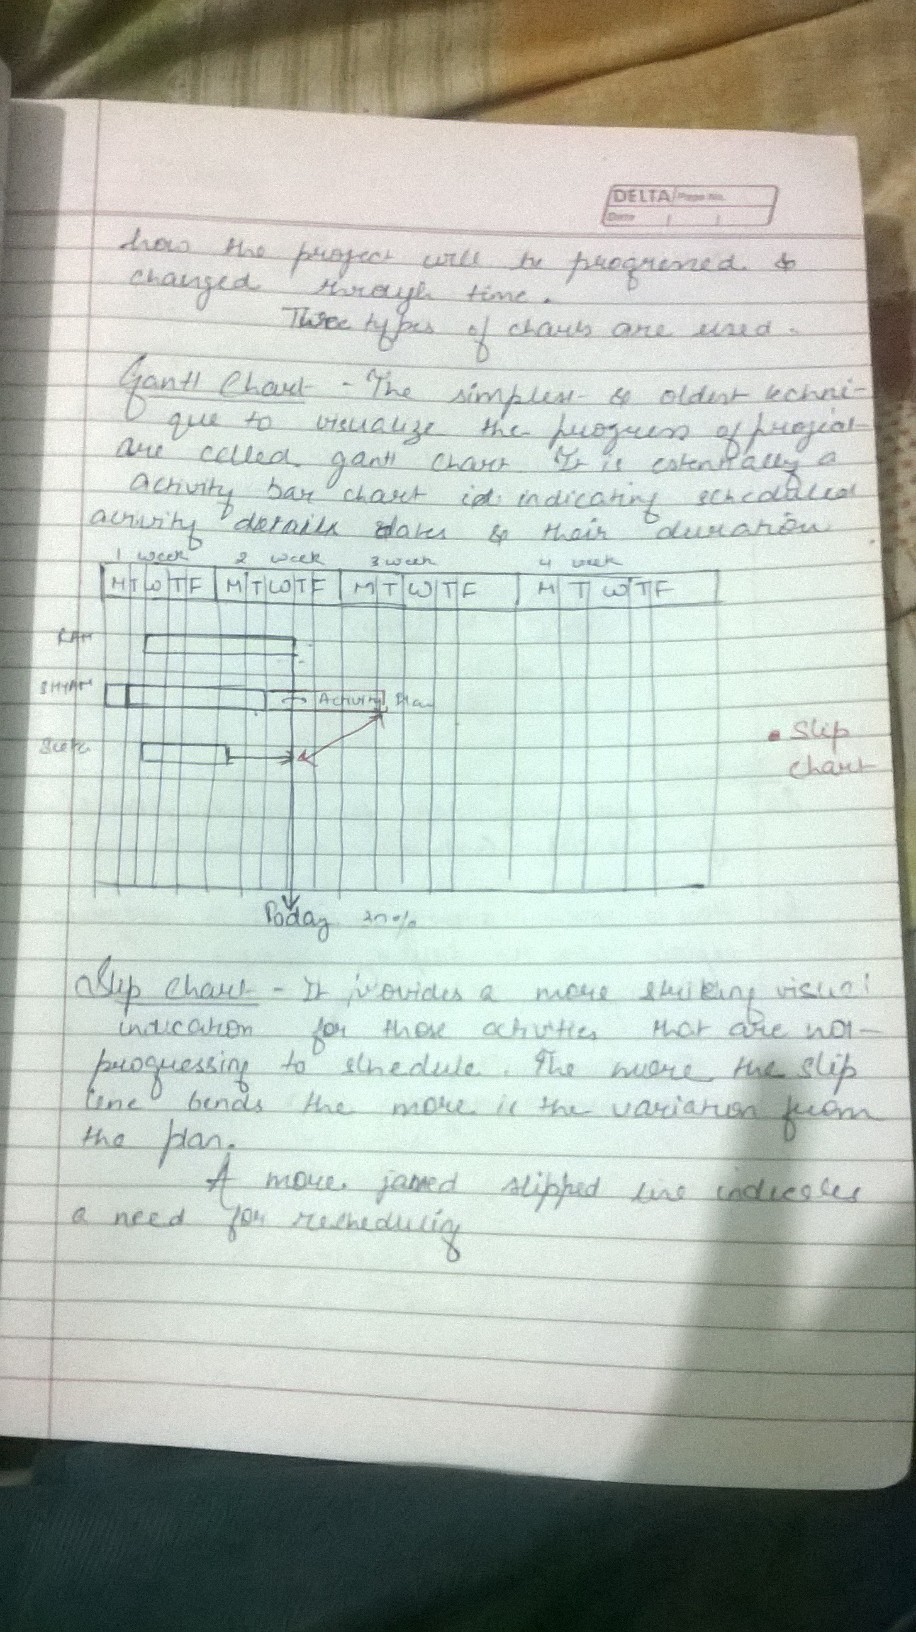 DELTA Page No.
Date
how the project will be progressed &
changed through time.
Three types of charts are used.
Gantt Chart - The simplest & oldest techni-
que to visualize the progress of project
are called gantt chart. It is essentially a
activity bar chart indicating scheduled
activity details dates & their duration
1 week 2 week 3 week 4 week
M T W T F M T W T F M T W T F M T W T F
RAM
SHYAM Activity
• Slip
chart
Today
Slip Chart - It provides a more striking visual
indication for those activities that are not
progressing to schedule. The more the slip
line bends the more is the variation from
the plan.
A more slipped line indicates
a need for rescheduling